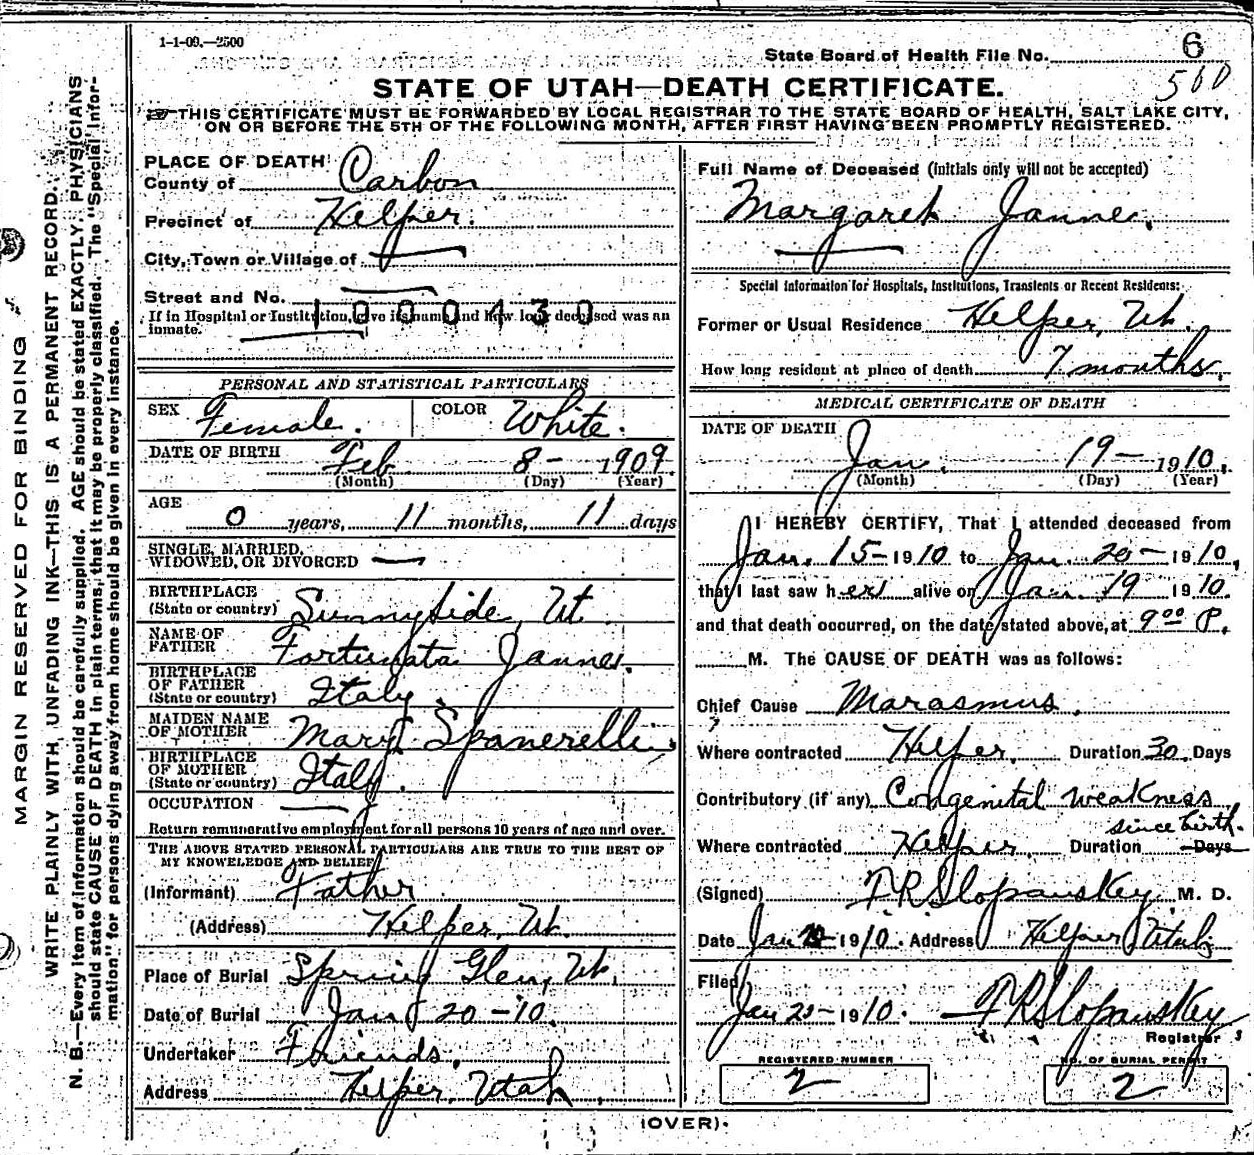 1-1-09.—2500
State Board of Health File No. 6
500
STATE OF UTAH—DEATH CERTIFICATE.
THIS CERTIFICATE MUST BE FORWARDED BY LOCAL REGISTRAR TO THE STATE BOARD OF HEALTH, SALT LAKE CITY,
ON OR BEFORE THE 5TH OF THE FOLLOWING MONTH, AFTER FIRST HAVING BEEN PROMPTLY REGISTERED.
MARGIN RESERVED FOR BINDING
WRITE PLAINLY WITH UNFADING INK—THIS IS A PERMANENT RECORD.
N. B.—Every item of information should be carefully supplied. AGE should be stated EXACTLY. PHYSICIANS
should state CAUSE OF DEATH in plain terms, that it may be properly classified. The "Special Infor-
mation" for persons dying away from home should be given in every instance.
PLACE OF DEATH
County of Carbon
Precinct of Helper.
City, Town or Village of —
Street and No. —
1000430
If in Hospital or Institution, give its name and how long deceased was an
inmate.
PERSONAL AND STATISTICAL PARTICULARS
SEX Female. COLOR White.
DATE OF BIRTH Feb 8- 1909.
(Month) (Day) (Year)
AGE 0 years, 11 months, 11 days
SINGLE, MARRIED,
WIDOWED, OR DIVORCED —
BIRTHPLACE
(State or country) Sunnyside, Ut.
NAME OF
FATHER Fortunata Janne.
BIRTHPLACE
OF FATHER
(State or country) Italy.
MAIDEN NAME
OF MOTHER Mary Spanerelli
BIRTHPLACE
OF MOTHER
(State or country) Italy.
OCCUPATION —
Return remunerative employment for all persons 10 years of age and over.
THE ABOVE STATED PERSONAL PARTICULARS ARE TRUE TO THE BEST OF
MY KNOWELEDGE AND BELIEF
(Informant) Father
(Address) Helper, Ut.
Place of Burial Spring Glen, Ut.
Date of Burial Jan 20-10.
Undertaker Friends.
Address Helper, Utah.
Full Name of Deceased (initials only will not be accepted)
Margaret Janne.
—
Special Information for Hospitals, Institutions, Transients or Recent Residents:
Former or Usual Residence Helper, Ut.
How long resident at place of death 7 months.
MEDICAL CERTIFICATE OF DEATH
DATE OF DEATH
Jan. 19- 1910.
(Month) (Day) (Year)
I HEREBY CERTIFY, That I attended deceased from
Jan. 15- 1910 to Jan. 20- 1910,
that I last saw her alive on Jan. 19 1910.
and that death occurred, on the date stated above, at 9 00 P.
M. The CAUSE OF DEATH was as follows:
Chief Cause Marasmus.
Where contracted Helper. Duration 30 Days
Contributory (if any) Congenital weakness
since birth.
Where contracted Helper. Duration Days
(Signed) F.R. Slopanskey M. D.
Date Jan 1910. Address Helper Utah
Filed
Jan 20- 1910. F R Slopanskey
Registrar
REGISTERED NUMBER
2
NO. OF BURIAL PERMIT
2
(OVER).